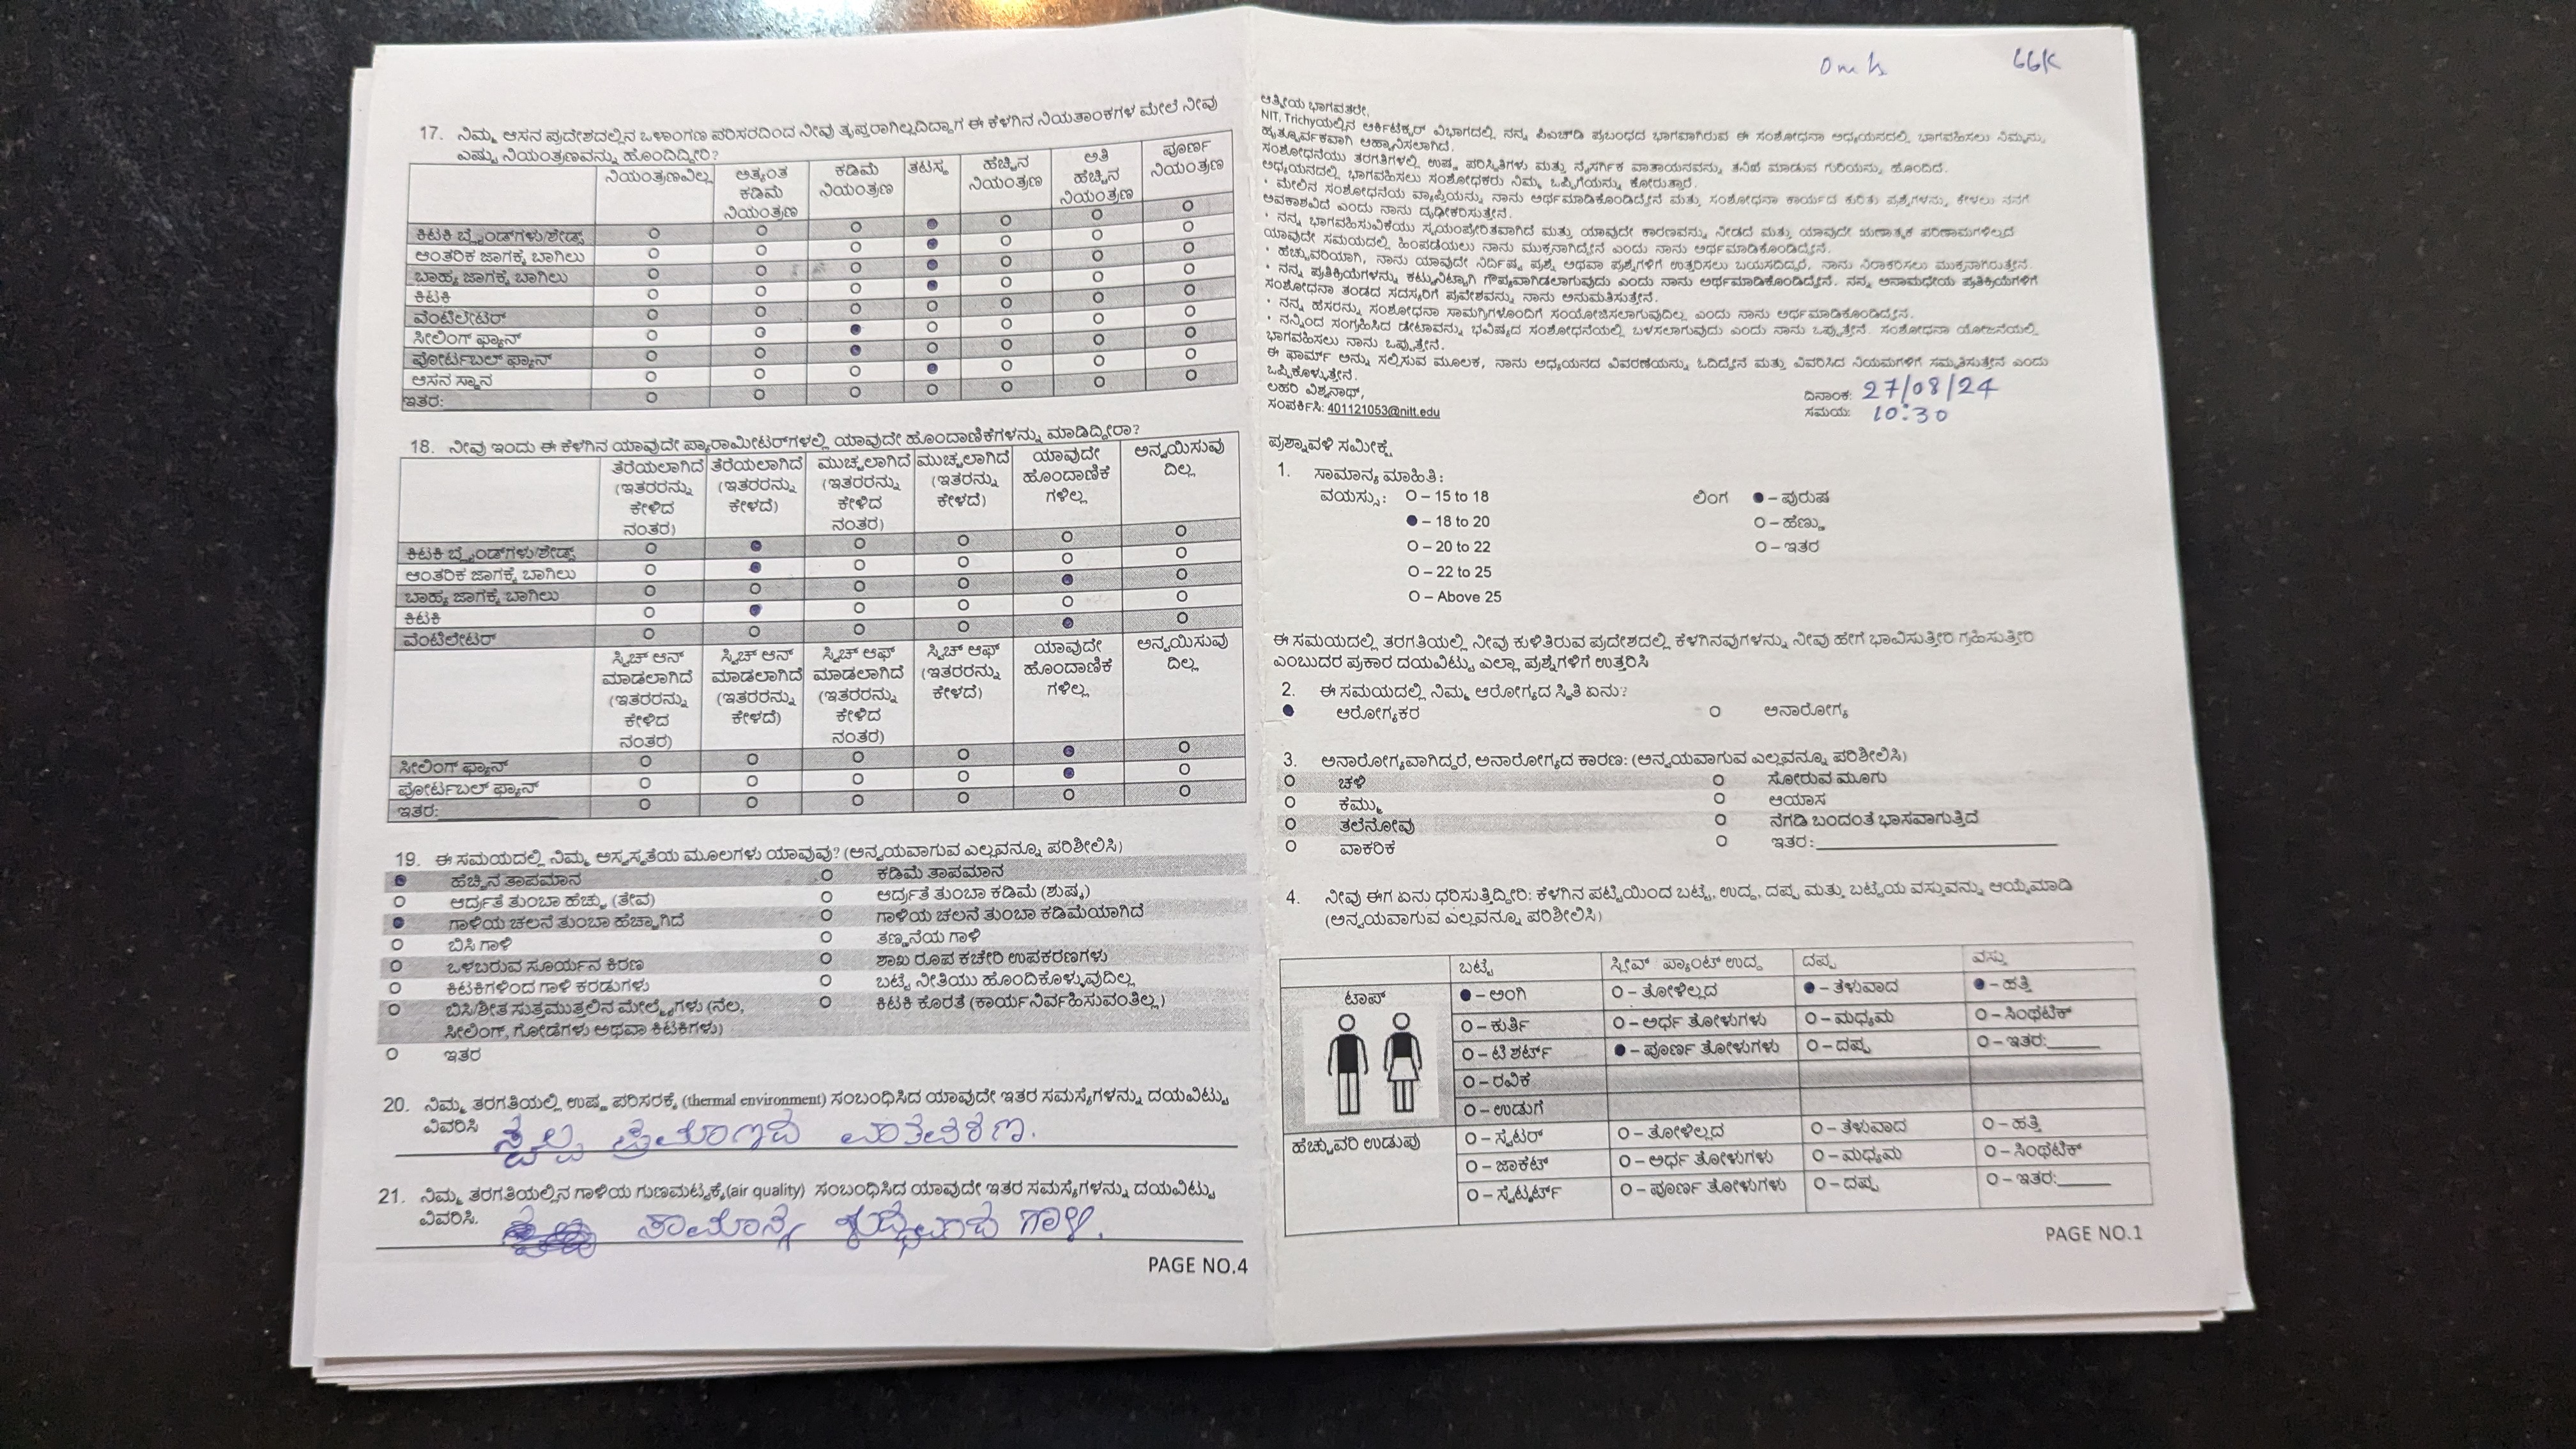 17. ನಿಮ್ಮ ಆಸನ ಪ್ರದೇಶದಲ್ಲಿನ ಒಳಾಂಗಣ ಪರಿಸರದಿಂದ ನೀವು ತೃಪ್ತರಾಗಿಲ್ಲದಿದ್ದಾಗ ಈ ಕೆಳಗಿನ ನಿಯತಾಂಕಗಳ ಮೇಲೆ ನೀವು
ಎಷ್ಟು ನಿಯಂತ್ರಣವನ್ನು ಹೊಂದಿದ್ದೀರಿ?
ನಿಯಂತ್ರಣವಿಲ್ಲ ಅತ್ಯಂತ ಕಡಿಮೆ ನಿಯಂತ್ರಣ ಕಡಿಮೆ ನಿಯಂತ್ರಣ ತಟಸ್ಥ ಹೆಚ್ಚಿನ ನಿಯಂತ್ರಣ ಅತಿ ಹೆಚ್ಚಿನ ನಿಯಂತ್ರಣ ಪೂರ್ಣ ನಿಯಂತ್ರಣ
ಕಿಟಕಿ ಬ್ಲೈಂಡ್‌ಗಳು/ಶೇಡ್ಸ್
ಆಂತರಿಕ ಜಾಗಕ್ಕೆ ಬಾಗಿಲು
ಬಾಹ್ಯ ಜಾಗಕ್ಕೆ ಬಾಗಿಲು
ಕಿಟಕಿ
ವೆಂಟಿಲೇಟರ್
ಸೀಲಿಂಗ್ ಫ್ಯಾನ್
ಪೋರ್ಟಬಲ್ ಫ್ಯಾನ್
ಆಸನ ಸ್ಥಾನ
ಇತರ:
18. ನೀವು ಇಂದು ಈ ಕೆಳಗಿನ ಯಾವುದೇ ಪ್ಯಾರಾಮೀಟರ್‌ಗಳಲ್ಲಿ ಯಾವುದೇ ಹೊಂದಾಣಿಕೆಗಳನ್ನು ಮಾಡಿದ್ದೀರಾ?
ತೆರೆಯಲಾಗಿದೆ (ಇತರರನ್ನು ಕೇಳಿದ ನಂತರ) ತೆರೆಯಲಾಗಿದೆ (ಇತರರನ್ನು ಕೇಳದೆ) ಮುಚ್ಚಲಾಗಿದೆ (ಇತರರನ್ನು ಕೇಳಿದ ನಂತರ) ಮುಚ್ಚಲಾಗಿದೆ (ಇತರರನ್ನು ಕೇಳದೆ) ಯಾವುದೇ ಹೊಂದಾಣಿಕೆ ಗಳಿಲ್ಲ ಅನ್ವಯಿಸುವು ದಿಲ್ಲ
ಕಿಟಕಿ ಬ್ಲೈಂಡ್‌ಗಳು/ಶೇಡ್ಸ್
ಆಂತರಿಕ ಜಾಗಕ್ಕೆ ಬಾಗಿಲು
ಬಾಹ್ಯ ಜಾಗಕ್ಕೆ ಬಾಗಿಲು
ಕಿಟಕಿ
ವೆಂಟಿಲೇಟರ್
ಸ್ವಿಚ್ ಆನ್ ಮಾಡಲಾಗಿದೆ (ಇತರರನ್ನು ಕೇಳಿದ ನಂತರ) ಸ್ವಿಚ್ ಆನ್ ಮಾಡಲಾಗಿದೆ (ಇತರರನ್ನು ಕೇಳದೆ) ಸ್ವಿಚ್ ಆಫ್ ಮಾಡಲಾಗಿದೆ (ಇತರರನ್ನು ಕೇಳಿದ ನಂತರ) ಸ್ವಿಚ್ ಆಫ್ (ಇತರರನ್ನು ಕೇಳದೆ) ಯಾವುದೇ ಹೊಂದಾಣಿಕೆ ಗಳಿಲ್ಲ ಅನ್ವಯಿಸುವು ದಿಲ್ಲ
ಸೀಲಿಂಗ್ ಫ್ಯಾನ್
ಪೋರ್ಟಬಲ್ ಫ್ಯಾನ್
ಇತರ:
19. ಈ ಸಮಯದಲ್ಲಿ ನಿಮ್ಮ ಅಸ್ವಸ್ಥತೆಯ ಮೂಲಗಳು ಯಾವುವು? (ಅನ್ವಯವಾಗುವ ಎಲ್ಲವನ್ನೂ ಪರಿಶೀಲಿಸಿ)
ಹೆಚ್ಚಿನ ತಾಪಮಾನ ಕಡಿಮೆ ತಾಪಮಾನ
ಆರ್ದ್ರತೆ ತುಂಬಾ ಹೆಚ್ಚು (ತೇವ) ಆರ್ದ್ರತೆ ತುಂಬಾ ಕಡಿಮೆ (ಶುಷ್ಕ)
ಗಾಳಿಯ ಚಲನೆ ತುಂಬಾ ಹೆಚ್ಚಾಗಿದೆ ಗಾಳಿಯ ಚಲನೆ ತುಂಬಾ ಕಡಿಮೆಯಾಗಿದೆ
ಬಿಸಿ ಗಾಳಿ ತಣ್ಣನೆಯ ಗಾಳಿ
ಒಳಬರುವ ಸೂರ್ಯನ ಕಿರಣ ಶಾಖ ರೂಪ ಕಚೇರಿ ಉಪಕರಣಗಳು
ಕಿಟಕಿಗಳಿಂದ ಗಾಳಿ ಕರಡುಗಳು ಬಟ್ಟೆ ನೀತಿಯು ಹೊಂದಿಕೊಳ್ಳುವುದಿಲ್ಲ
ಬಿಸಿ/ಶೀತ ಸುತ್ತಮುತ್ತಲಿನ ಮೇಲ್ಮೈಗಳು (ನೆಲ, ಕಿಟಕಿ ಕೊರತೆ (ಕಾರ್ಯನಿರ್ವಹಿಸುವಂತಿಲ್ಲ)
ಸೀಲಿಂಗ್, ಗೋಡೆಗಳು ಅಥವಾ ಕಿಟಕಿಗಳು)
ಇತರ
20. ನಿಮ್ಮ ತರಗತಿಯಲ್ಲಿ ಉಷ್ಣ ಪರಿಸರಕ್ಕೆ (thermal environment) ಸಂಬಂಧಿಸಿದ ಯಾವುದೇ ಇತರ ಸಮಸ್ಯೆಗಳನ್ನು ದಯವಿಟ್ಟು
ವಿವರಿಸಿ ಸ್ವಲ್ಪ ಪ್ರಮಾಣದ ವಾತಾವರಣ.
21. ನಿಮ್ಮ ತರಗತಿಯಲ್ಲಿನ ಗಾಳಿಯ ಗುಣಮಟ್ಟಕ್ಕೆ(air quality) ಸಂಬಂಧಿಸಿದ ಯಾವುದೇ ಇತರ ಸಮಸ್ಯೆಗಳನ್ನು ದಯವಿಟ್ಟು
ವಿವರಿಸಿ. ಸಾಮಾನ್ಯ ಶುದ್ಧವಾದ ಗಾಳಿ.
PAGE NO.4
66K
ಆತ್ಮೀಯ ಭಾಗವತರೇ,
NIT, Trichyಯಲ್ಲಿನ ಆರ್ಕಿಟೆಕ್ಚರ್ ವಿಭಾಗದಲ್ಲಿ ನನ್ನ ಪಿಎಚ್‌ಡಿ ಪ್ರಬಂಧದ ಭಾಗವಾಗಿರುವ ಈ ಸಂಶೋಧನಾ ಅಧ್ಯಯನದಲ್ಲಿ ಭಾಗವಹಿಸಲು ನಿಮ್ಮನ್ನು
ಹೃತ್ಪೂರ್ವಕವಾಗಿ ಆಹ್ವಾನಿಸಲಾಗಿದೆ.
ಸಂಶೋಧನೆಯು ತರಗತಿಗಳಲ್ಲಿ ಉಷ್ಣ ಪರಿಸ್ಥಿತಿಗಳು ಮತ್ತು ನೈಸರ್ಗಿಕ ವಾತಾಯನವನ್ನು ತನಿಖೆ ಮಾಡುವ ಗುರಿಯನ್ನು ಹೊಂದಿದೆ.
ಅಧ್ಯಯನದಲ್ಲಿ ಭಾಗವಹಿಸಲು ಸಂಶೋಧಕರು ನಿಮ್ಮ ಒಪ್ಪಿಗೆಯನ್ನು ಕೋರುತ್ತಾರೆ.
• ಮೇಲಿನ ಸಂಶೋಧನೆಯ ವ್ಯಾಪ್ತಿಯನ್ನು ನಾನು ಅರ್ಥಮಾಡಿಕೊಂಡಿದ್ದೇನೆ ಮತ್ತು ಸಂಶೋಧನಾ ಕಾರ್ಯದ ಕುರಿತು ಪ್ರಶ್ನೆಗಳನ್ನು ಕೇಳಲು ನನಗೆ
ಅವಕಾಶವಿದೆ ಎಂದು ನಾನು ದೃಢೀಕರಿಸುತ್ತೇನೆ.
• ನನ್ನ ಭಾಗವಹಿಸುವಿಕೆಯು ಸ್ವಯಂಪ್ರೇರಿತವಾಗಿದೆ ಮತ್ತು ಯಾವುದೇ ಕಾರಣವನ್ನು ನೀಡದೆ ಮತ್ತು ಯಾವುದೇ ಋಣಾತ್ಮಕ ಪರಿಣಾಮಗಳಿಲ್ಲದೆ
ಯಾವುದೇ ಸಮಯದಲ್ಲಿ ಹಿಂಪಡೆಯಲು ನಾನು ಮುಕ್ತನಾಗಿದ್ದೇನೆ ಎಂದು ನಾನು ಅರ್ಥಮಾಡಿಕೊಂಡಿದ್ದೇನೆ.
• ಹೆಚ್ಚುವರಿಯಾಗಿ, ನಾನು ಯಾವುದೇ ನಿರ್ದಿಷ್ಟ ಪ್ರಶ್ನೆ ಅಥವಾ ಪ್ರಶ್ನೆಗಳಿಗೆ ಉತ್ತರಿಸಲು ಬಯಸದಿದ್ದರೆ, ನಾನು ನಿರಾಕರಿಸಲು ಮುಕ್ತನಾಗಿರುತ್ತೇನೆ.
• ನನ್ನ ಪ್ರತಿಕ್ರಿಯೆಗಳನ್ನು ಕಟ್ಟುನಿಟ್ಟಾಗಿ ಗೌಪ್ಯವಾಗಿಡಲಾಗುವುದು ಎಂದು ನಾನು ಅರ್ಥಮಾಡಿಕೊಂಡಿದ್ದೇನೆ. ನನ್ನ ಅನಾಮಧೇಯ ಪ್ರತಿಕ್ರಿಯೆಗಳಿಗೆ
ಸಂಶೋಧನಾ ತಂಡದ ಸದಸ್ಯರಿಗೆ ಪ್ರವೇಶವನ್ನು ನಾನು ಅನುಮತಿಸುತ್ತೇನೆ.
• ನನ್ನ ಹೆಸರನ್ನು ಸಂಶೋಧನಾ ಸಾಮಗ್ರಿಗಳೊಂದಿಗೆ ಸಂಯೋಜಿಸಲಾಗುವುದಿಲ್ಲ ಎಂದು ನಾನು ಅರ್ಥಮಾಡಿಕೊಂಡಿದ್ದೇನೆ.
• ನನ್ನಿಂದ ಸಂಗ್ರಹಿಸಿದ ಡೇಟಾವನ್ನು ಭವಿಷ್ಯದ ಸಂಶೋಧನೆಯಲ್ಲಿ ಬಳಸಲಾಗುವುದು ಎಂದು ನಾನು ಒಪ್ಪುತ್ತೇನೆ. ಸಂಶೋಧನಾ ಯೋಜನೆಯಲ್ಲಿ
ಭಾಗವಹಿಸಲು ನಾನು ಒಪ್ಪುತ್ತೇನೆ.
ಈ ಫಾರ್ಮ್ ಅನ್ನು ಸಲ್ಲಿಸುವ ಮೂಲಕ, ನಾನು ಅಧ್ಯಯನದ ವಿವರಣೆಯನ್ನು ಓದಿದ್ದೇನೆ ಮತ್ತು ವಿವರಿಸಿದ ನಿಯಮಗಳಿಗೆ ಸಮ್ಮತಿಸುತ್ತೇನೆ ಎಂದು
ಒಪ್ಪಿಕೊಳ್ಳುತ್ತೇನೆ.
ಲಹರಿ ವಿಶ್ವನಾಥ್,
ಸಂಪರ್ಕಿಸಿ: 401121053@nitt.edu
ದಿನಾಂಕ: 27/08/24
ಸಮಯ: 10:30
ಪ್ರಶ್ನಾವಳಿ ಸಮೀಕ್ಷೆ
1. ಸಾಮಾನ್ಯ ಮಾಹಿತಿ:
ವಯಸ್ಸು: – 15 to 18 ಲಿಂಗ – ಪುರುಷ
– 18 to 20 – ಹೆಣ್ಣು
– 20 to 22 – ಇತರ
– 22 to 25
– Above 25
ಈ ಸಮಯದಲ್ಲಿ ತರಗತಿಯಲ್ಲಿ ನೀವು ಕುಳಿತಿರುವ ಪ್ರದೇಶದಲ್ಲಿ ಕೆಳಗಿನವುಗಳನ್ನು ನೀವು ಹೇಗೆ ಭಾವಿಸುತ್ತೀರಿ ಗ್ರಹಿಸುತ್ತೀರಿ
ಎಂಬುದರ ಪ್ರಕಾರ ದಯವಿಟ್ಟು ಎಲ್ಲಾ ಪ್ರಶ್ನೆಗಳಿಗೆ ಉತ್ತರಿಸಿ
2. ಈ ಸಮಯದಲ್ಲಿ ನಿಮ್ಮ ಆರೋಗ್ಯದ ಸ್ಥಿತಿ ಏನು?
ಆರೋಗ್ಯಕರ ಅನಾರೋಗ್ಯ
3. ಅನಾರೋಗ್ಯವಾಗಿದ್ದರೆ, ಅನಾರೋಗ್ಯದ ಕಾರಣ: (ಅನ್ವಯವಾಗುವ ಎಲ್ಲವನ್ನೂ ಪರಿಶೀಲಿಸಿ)
ಚಳಿ ಸೋರುವ ಮೂಗು
ಕೆಮ್ಮು ಆಯಾಸ
ತಲೆನೋವು ನೆಗಡಿ ಬಂದಂತೆ ಭಾಸವಾಗುತ್ತಿದೆ
ವಾಕರಿಕೆ ಇತರ:
4. ನೀವು ಈಗ ಏನು ಧರಿಸುತ್ತಿದ್ದೀರಿ: ಕೆಳಗಿನ ಪಟ್ಟಿಯಿಂದ ಬಟ್ಟೆ, ಉದ್ದ, ದಪ್ಪ ಮತ್ತು ಬಟ್ಟೆಯ ವಸ್ತುವನ್ನು ಆಯ್ಕೆಮಾಡಿ
(ಅನ್ವಯವಾಗುವ ಎಲ್ಲವನ್ನೂ ಪರಿಶೀಲಿಸಿ)
ಬಟ್ಟೆ ಸ್ಲೀವ್ ಪ್ಯಾಂಟ್ ಉದ್ದ ದಪ್ಪ ವಸ್ತು
ಟಾಪ್ – ಅಂಗಿ – ತೋಳಿಲ್ಲದ – ತೆಳುವಾದ – ಹತ್ತಿ
– ಕುರ್ತಿ – ಅರ್ಧ ತೋಳುಗಳು – ಮಧ್ಯಮ – ಸಿಂಥೆಟಿಕ್
– ಟಿ ಶರ್ಟ್ – ಪೂರ್ಣ ತೋಳುಗಳು – ದಪ್ಪ – ಇತರ:
– ರವಿಕೆ
– ಉಡುಗೆ
ಹೆಚ್ಚುವರಿ ಉಡುಪು – ಸ್ವೆಟರ್ – ತೋಳಿಲ್ಲದ – ತೆಳುವಾದ – ಹತ್ತಿ
– ಜಾಕೆಟ್ – ಅರ್ಧ ತೋಳುಗಳು – ಮಧ್ಯಮ – ಸಿಂಥೆಟಿಕ್
– ಸ್ವೆಟ್ಶರ್ಟ್ – ಪೂರ್ಣ ತೋಳುಗಳು – ದಪ್ಪ – ಇತರ:
PAGE NO.1